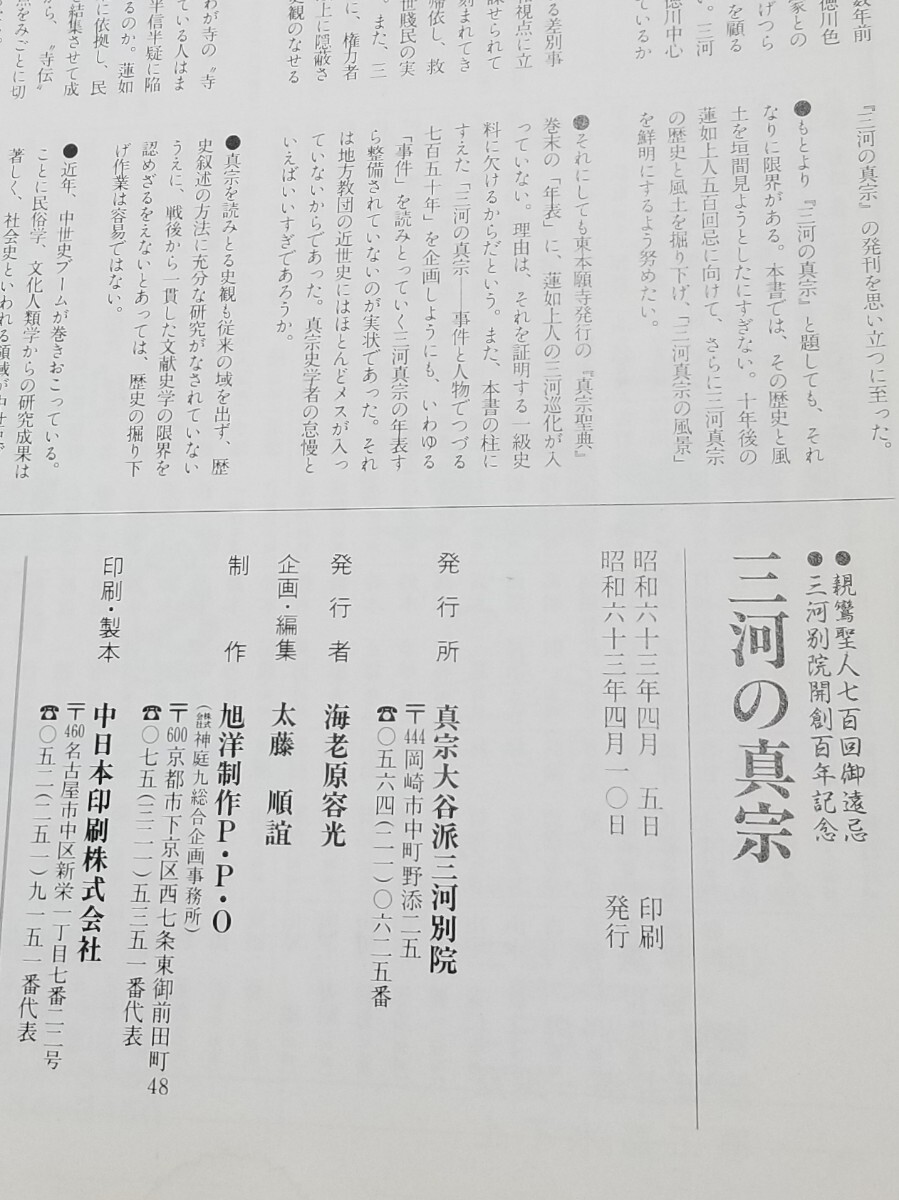 数年前
徳川色
家との
げつら
を顧る
い。三河
徳川中心
ているか
る差別事
視点に立
課せられて
刻まれてき
帰依し、救
世賤民の実
。また、三
に、権力者
上に隠蔽さ
史観のなせる
わが寺の〝寺
ている人はま
半信半疑に陥
るのか。蓮如
に依拠し、民
結集させて成
から、〝寺伝〟
点をみごとに切
『三河の真宗』の発刊を思い立つに至った。
●もとより『三河の真宗』と題しても、それ
なりに限界がある。本書では、その歴史と風
土を垣間見ようとしたにすぎない。十年後の
蓮如上人五百回忌に向けて、さらに三河真宗
の歴史と風土を掘り下げ、「三河真宗の風景」
を鮮明にするよう努めたい。
●それにしても東本願寺発行の『真宗聖典』
巻末の「年表」に、蓮如上人の三河巡化が入
っていない。理由は、それを証明する一級史
料に欠けるからだという。また、本書の柱に
すえた「三河の真宗——事件と人物でつづる
七百五十年」を企画しようにも、いわゆる
「事件」を読みとっていく三河真宗の年表す
ら整備されていないのが実状であった。それ
は地方教団の近世史にはほとんどメスが入っ
ていないからであった。真宗史学者の怠慢と
いえばいいすぎであろうか。
●真宗を読みとる史観も従来の域を出ず、歴
史叙述の方法に充分な研究がなされていない
うえに、戦後から一貫した文献史学の限界を
認めざるをえないとあっては、歴史の掘り下
げ作業は容易ではない。
●近年、中世史ブームが巻きおこっている。
ことに民俗学、文化人類学からの研究成果は
著しく、社会史といわれる領域が
●親鸞聖人七百回御遠忌
●三河別院開創百年記念
三河の真宗
昭和六十三年四月 五日 印刷
昭和六十三年四月一〇日 発行
発行所 真宗大谷派三河別院
〒444岡崎市中町野添二五
☎〇五六四(二一)〇六二五番
発行者 海老原容光
企画・編集 太藤 順誼
制作 旭洋制作P・P・O
(株式会社神庭九総合企画事務所)
〒600京都市下京区西七条東御前田町48
☎〇七五(三一一)五三五一番代表
印刷・製本 中日本印刷株式会社
〒460名古屋市中区新栄一丁目七番二二号
☎〇五二(二五一)九一五一番代表